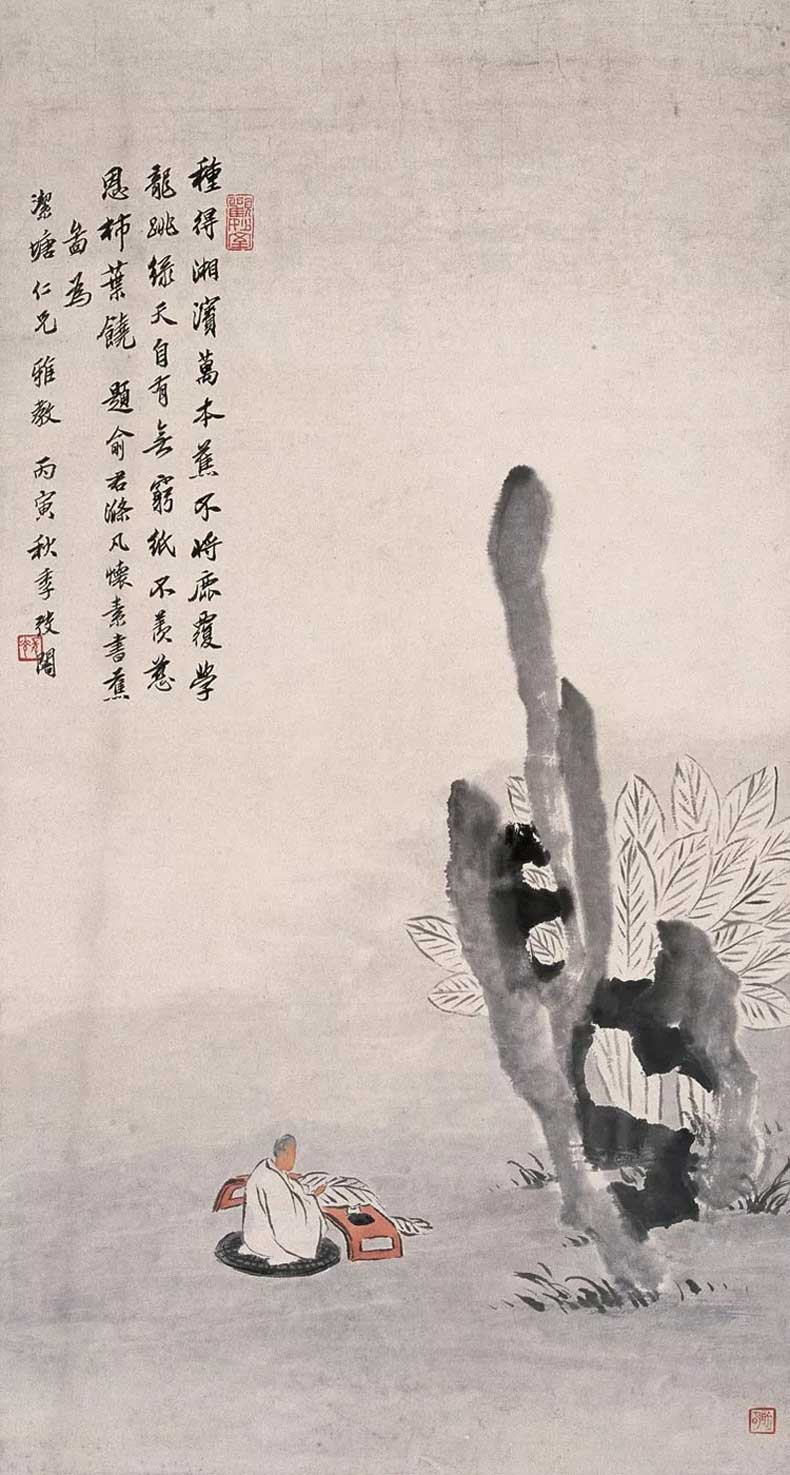 種得湘濱萬本蕉不將鹿覆學
龍跳綠天自有無窮紙不羨慈
恩柿葉饒 題俞君滌凡懷素書蕉
啚為
潔塘仁兄雅教 丙寅秋季弢